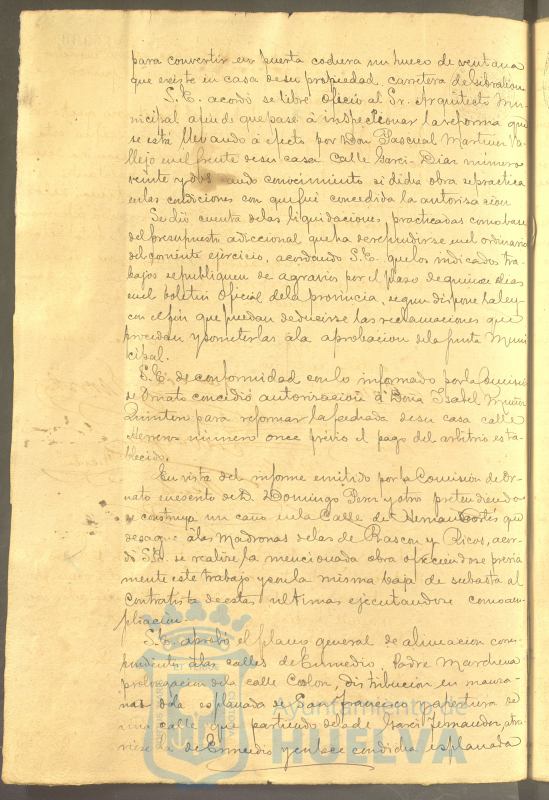 para convertir en puerta codura un hueco de ventana
que existe en casa de su propiedad carretera de Gibraleon
S. E. acordó se libre oficio al Sr. Arquitecto Mu-
nicipal afin de que pase á inspeccionar la reforma que
se está llevando á efecto por Don Pascual Martinez Va-
llejo en el frente de su casa Calle Garci-Diaz numero
veinte y dos dando conocimiento si dicha obra se practica
en las condiciones con que fué concedida la autorizacion
Se dió cuenta de las liquidaciones practicadas como base
del presupuesto adiccional que ha de refundirse en el ordinario
del corriente ejercicio, acordando S. E. que los indicados tra-
bajos se publiquen de agravios por el plazo de quince dias
en el boletin Oficial de la provincia, segun dispone la ley
con el fin que puedan deducirse las reclamaciones que
procedan y someterlas á la aprobacion de la Junta Muni-
cipal.
S. E. de conformidad con lo informado por la Comision
de Ornato concedió autorizacion á Doña Isabel Muñoz
Quintero para reformar la fachada de su casa calle
Herrero numero once previo el pago del arbitrio esta-
blecido.
En vista del informe emitido por la Comision de Or-
nato en escrito de D. Domingo y otro pretendiendo
se construya un caño en la Calle de Hernan Cortés que
desague á las Madronas de las de Rascon y Ricos, acor-
dó S. E. se realize la mencionada obra ofreciendose previa
mente este trabajo y con la misma baja de subasta al
contratista de estas ultimas ejecutandose como am-
pliacion.
S. E. aprobó el plano general de alineacion corres-
pondiente á las calles de Enmedio, Padre Marchena
prolongacion de la calle Colon, distribucion en manza-
nas de la esplanada de San Francisco y apertura de
una calle que partiendo de la de Garci Fernandez, atra-
viese la de Enmedio y enlace con dicha esplanada
Ayuntamiento de
HUELVA